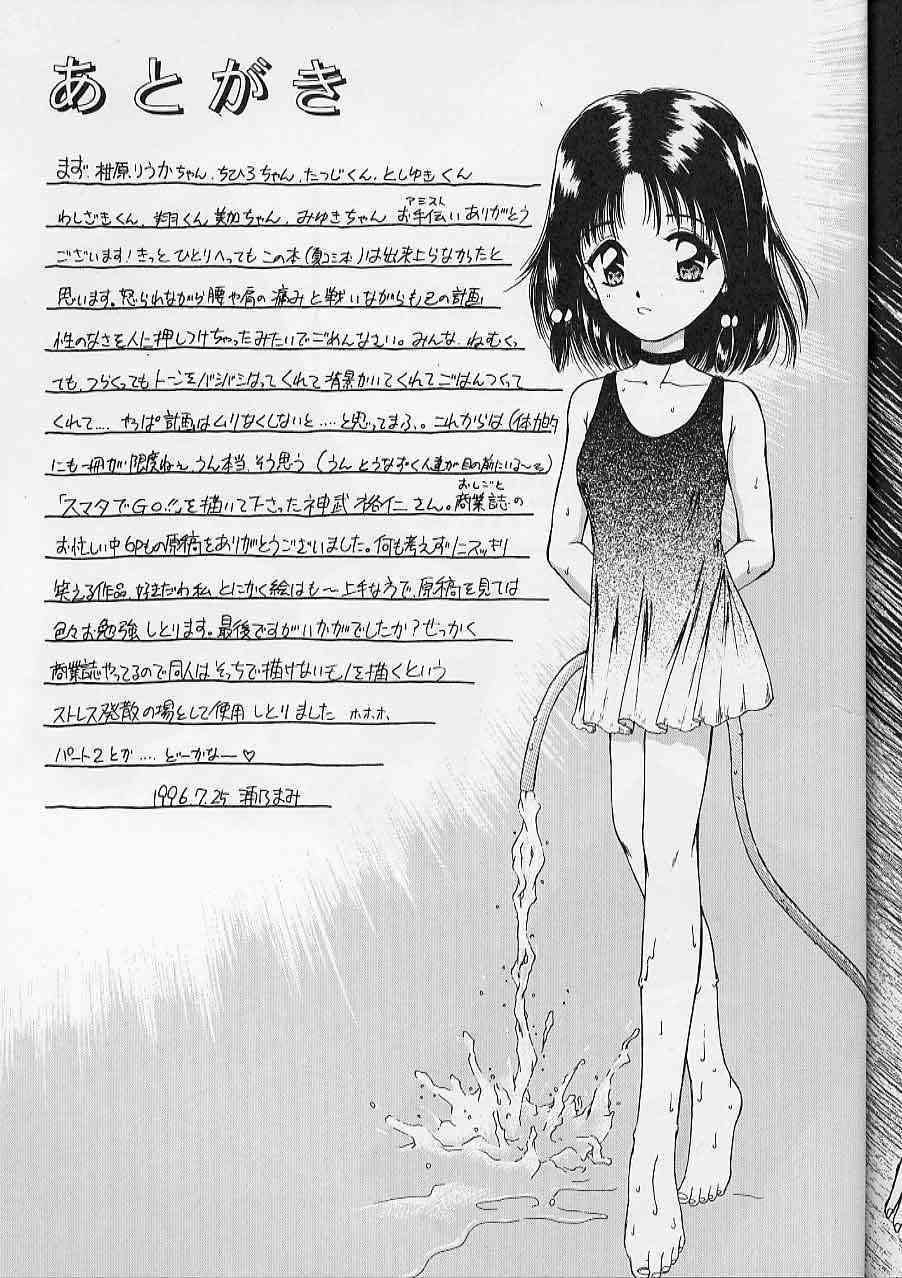 あとがき
まず、柑原りうかちゃん、ちひろちゃん、たつじくん、としゆきくん
わしざきくん、翔くん、美加ちゃん、みゆきちゃん お手伝いありがとう
アミスト
ございます！きっと ひとりへっても この本（夏コミ本）は出来上らなかったと
思います。怒られながら腰や肩の痛みと戦いながらも己の計画
性のなさを人に押しつけちゃったみたいでごめんなさい。みんな、ねむくっ
ても、つらくってもトーンをバシバシはってくれて背景かいてくれてごはんつくって
くれて.... やっぱ計画はムリなくしないと.....と思ってまふ。これからは（体力的
にも一冊が限度ねェ、うん本当、そう思う（うんとうなずく人達が目の前にいる〜
「スマタでGO!!」を描いて下さった神武裕仁さん。商業誌の
おしごと
お忙しい中6Pもの原稿をありがとうございました。何も考えずにスッキリ
笑える作品、好きだわ私 とにかく絵はも〜上手なうで、原稿を見ては
色々お勉強しとります。最後ですがいかがでしたか？せっかく
商業誌やってるので同人はそっちで描けないモノを描くという
ストレス発散の場として使用しとりました ホホホ、
パート2とか.... どーかなー♡
1996.7.25 まみ